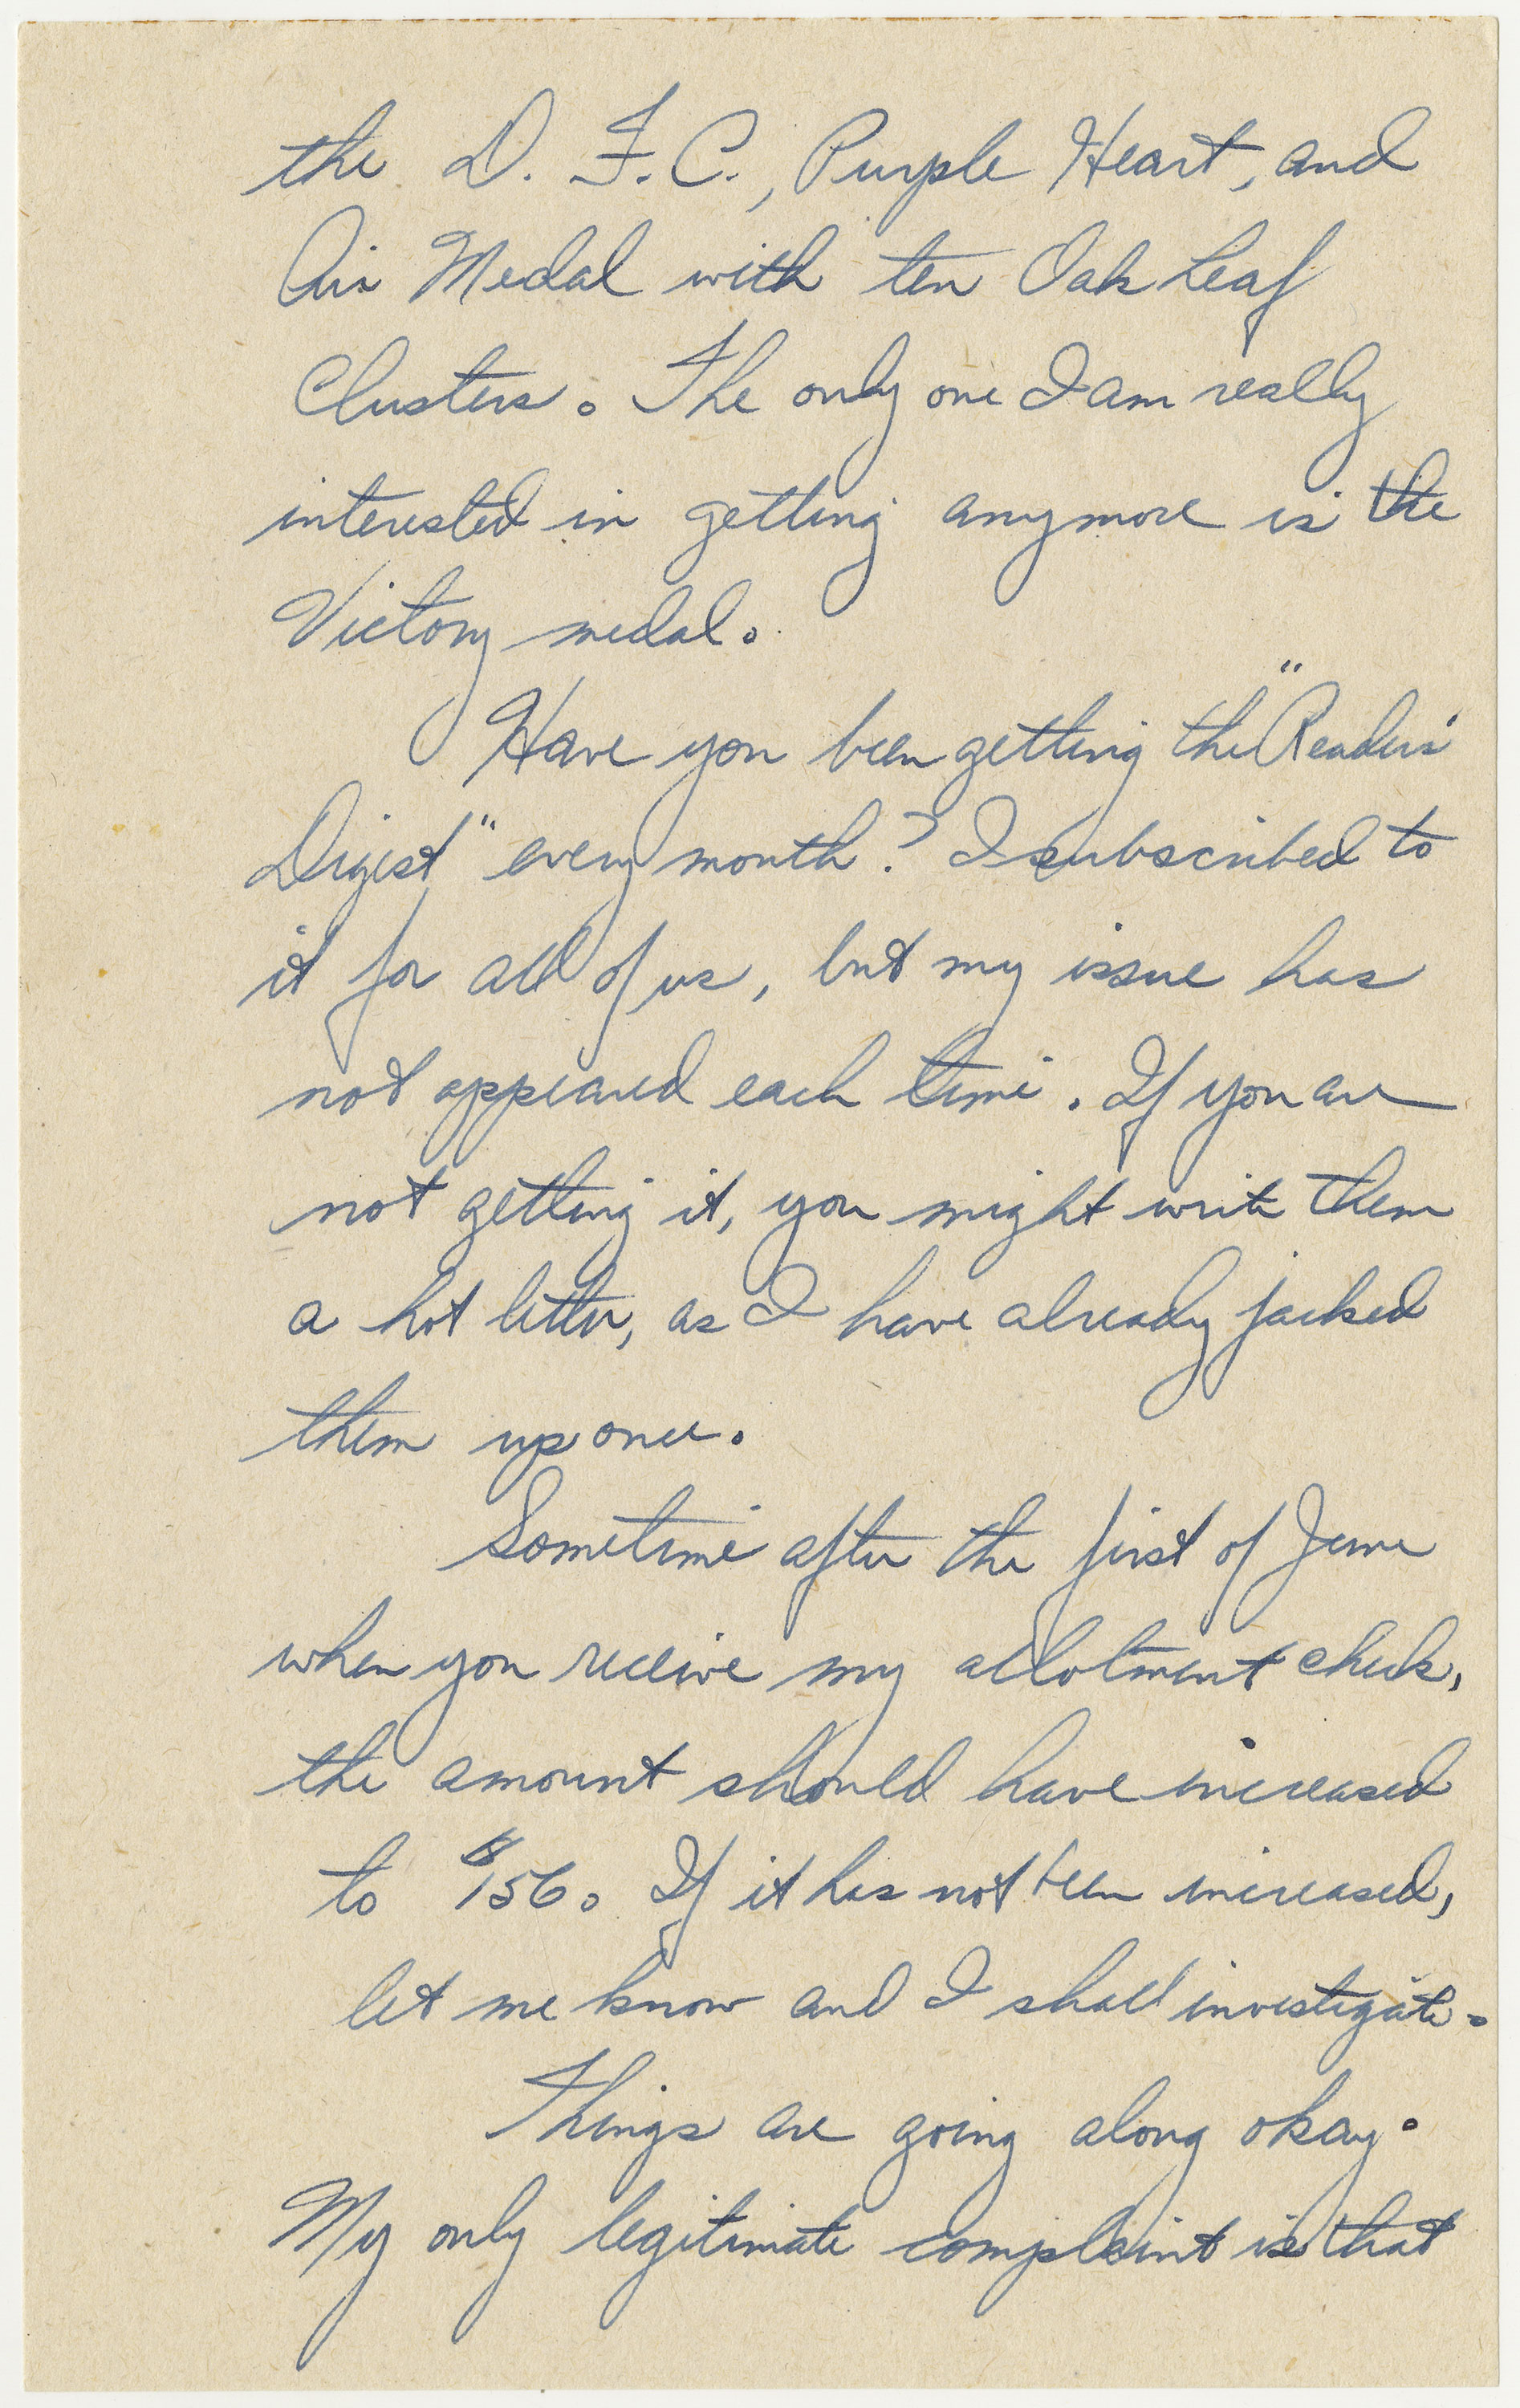 the D. F. C., Purple Heart, and
Air Medal with ten Oak Leaf
Clusters. The only one I am really
interested in getting anymore is the
Victory medal.
Have you been getting the "Readers'
Digest" every month? I subscribed to
it for all of us, but my issue has
not appeared each time. If you are
not getting it, you might write them
a hot letter, as I have already jacked
them up once.
Sometime after the first of June
when you receive my allotment check,
the amount should have increased
to $156. If it has not been increased,
let me know and I shall investigate.
Things are going along okay.
My only legitimate complaint is that